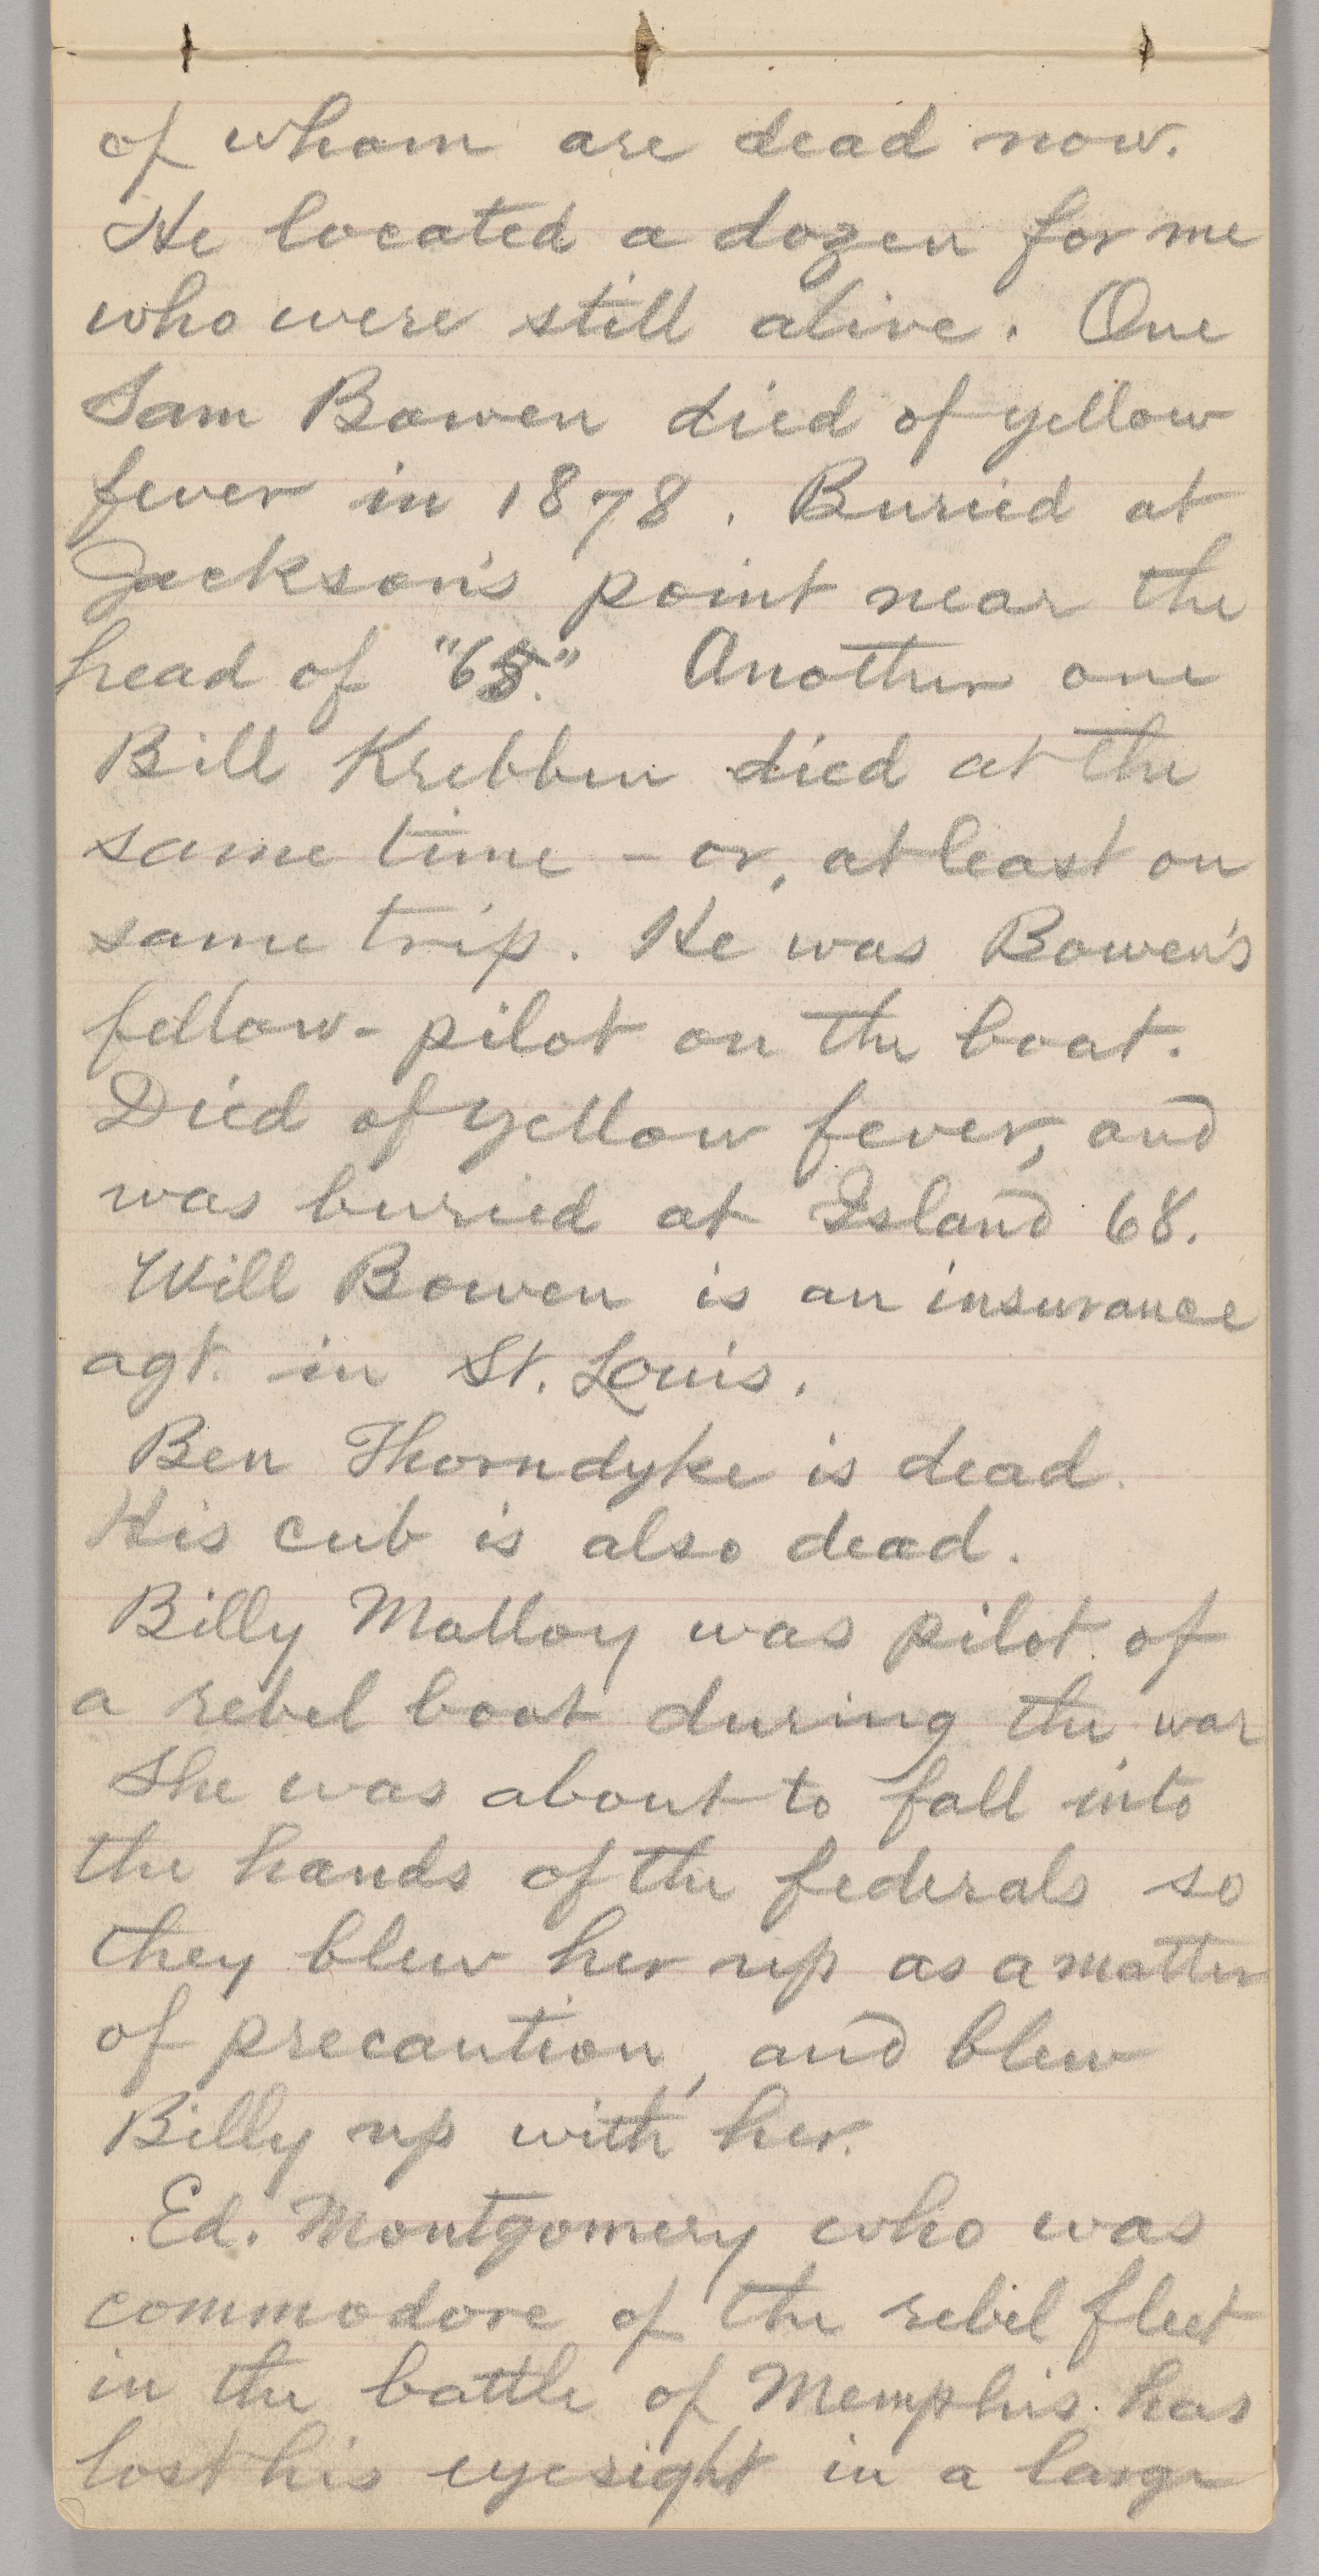 of whom are dead now.
He located a dozen for me
who were still alive. One
Sam Bowen died of yellow
fever in 1878. Buried at
Jackson's point near the
head of "65."  Another one
Bill Kribben died at the
same time – or, at least on
same trip. He was Bowen's
fellow-pilot on the boat.
Died of yellow fever, and
was buried at Island 68.
Will Bowen is an insurance
agt. in St. Louis.
Ben Thorndyke is dead.
His cub is also dead.
Billy Malloy was pilot of
a rebel boat during the war
She was about to fall into
the hands of the federals so
they blew her up as a matter
of precaution, and blew
Billy up with her.
Ed. Montgomery who was
commodore of the rebel fleet
in the battle of Memphis has
lost his eyesight in a large